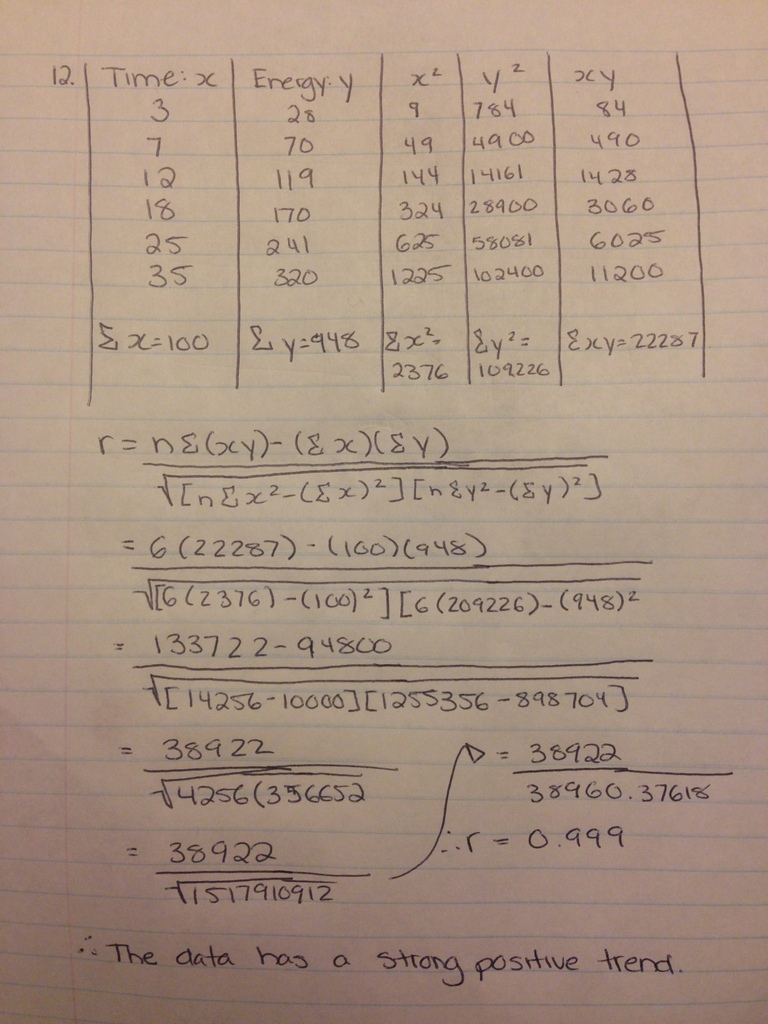 12. Time: x Energy: y x² y² xy
3 28 9 784 84
7 70 49 4900 490
12 119 144 14161 1428
18 170 324 28900 3060
25 241 625 58081 6025
35 320 1225 102400 11200
Σx=100 Σy=948 Σx²= Σy²= Σxy=22287
2376 109226
r = nΣ(xy)-(Σx)(Σy)
√[nΣx²-(Σx)²][nΣy²-(Σy)²]
= 6(22287)-(100)(948)
√[6(2376)-(100)²][6(209226)-(948)²
= 133722-94800
√[14256-10000][1255356-898704]
= 38922
√4256(356652
= 38922
√1517910912
= 38922
38960.37618
∴r = 0.999
∴ The data has a strong positive trend.